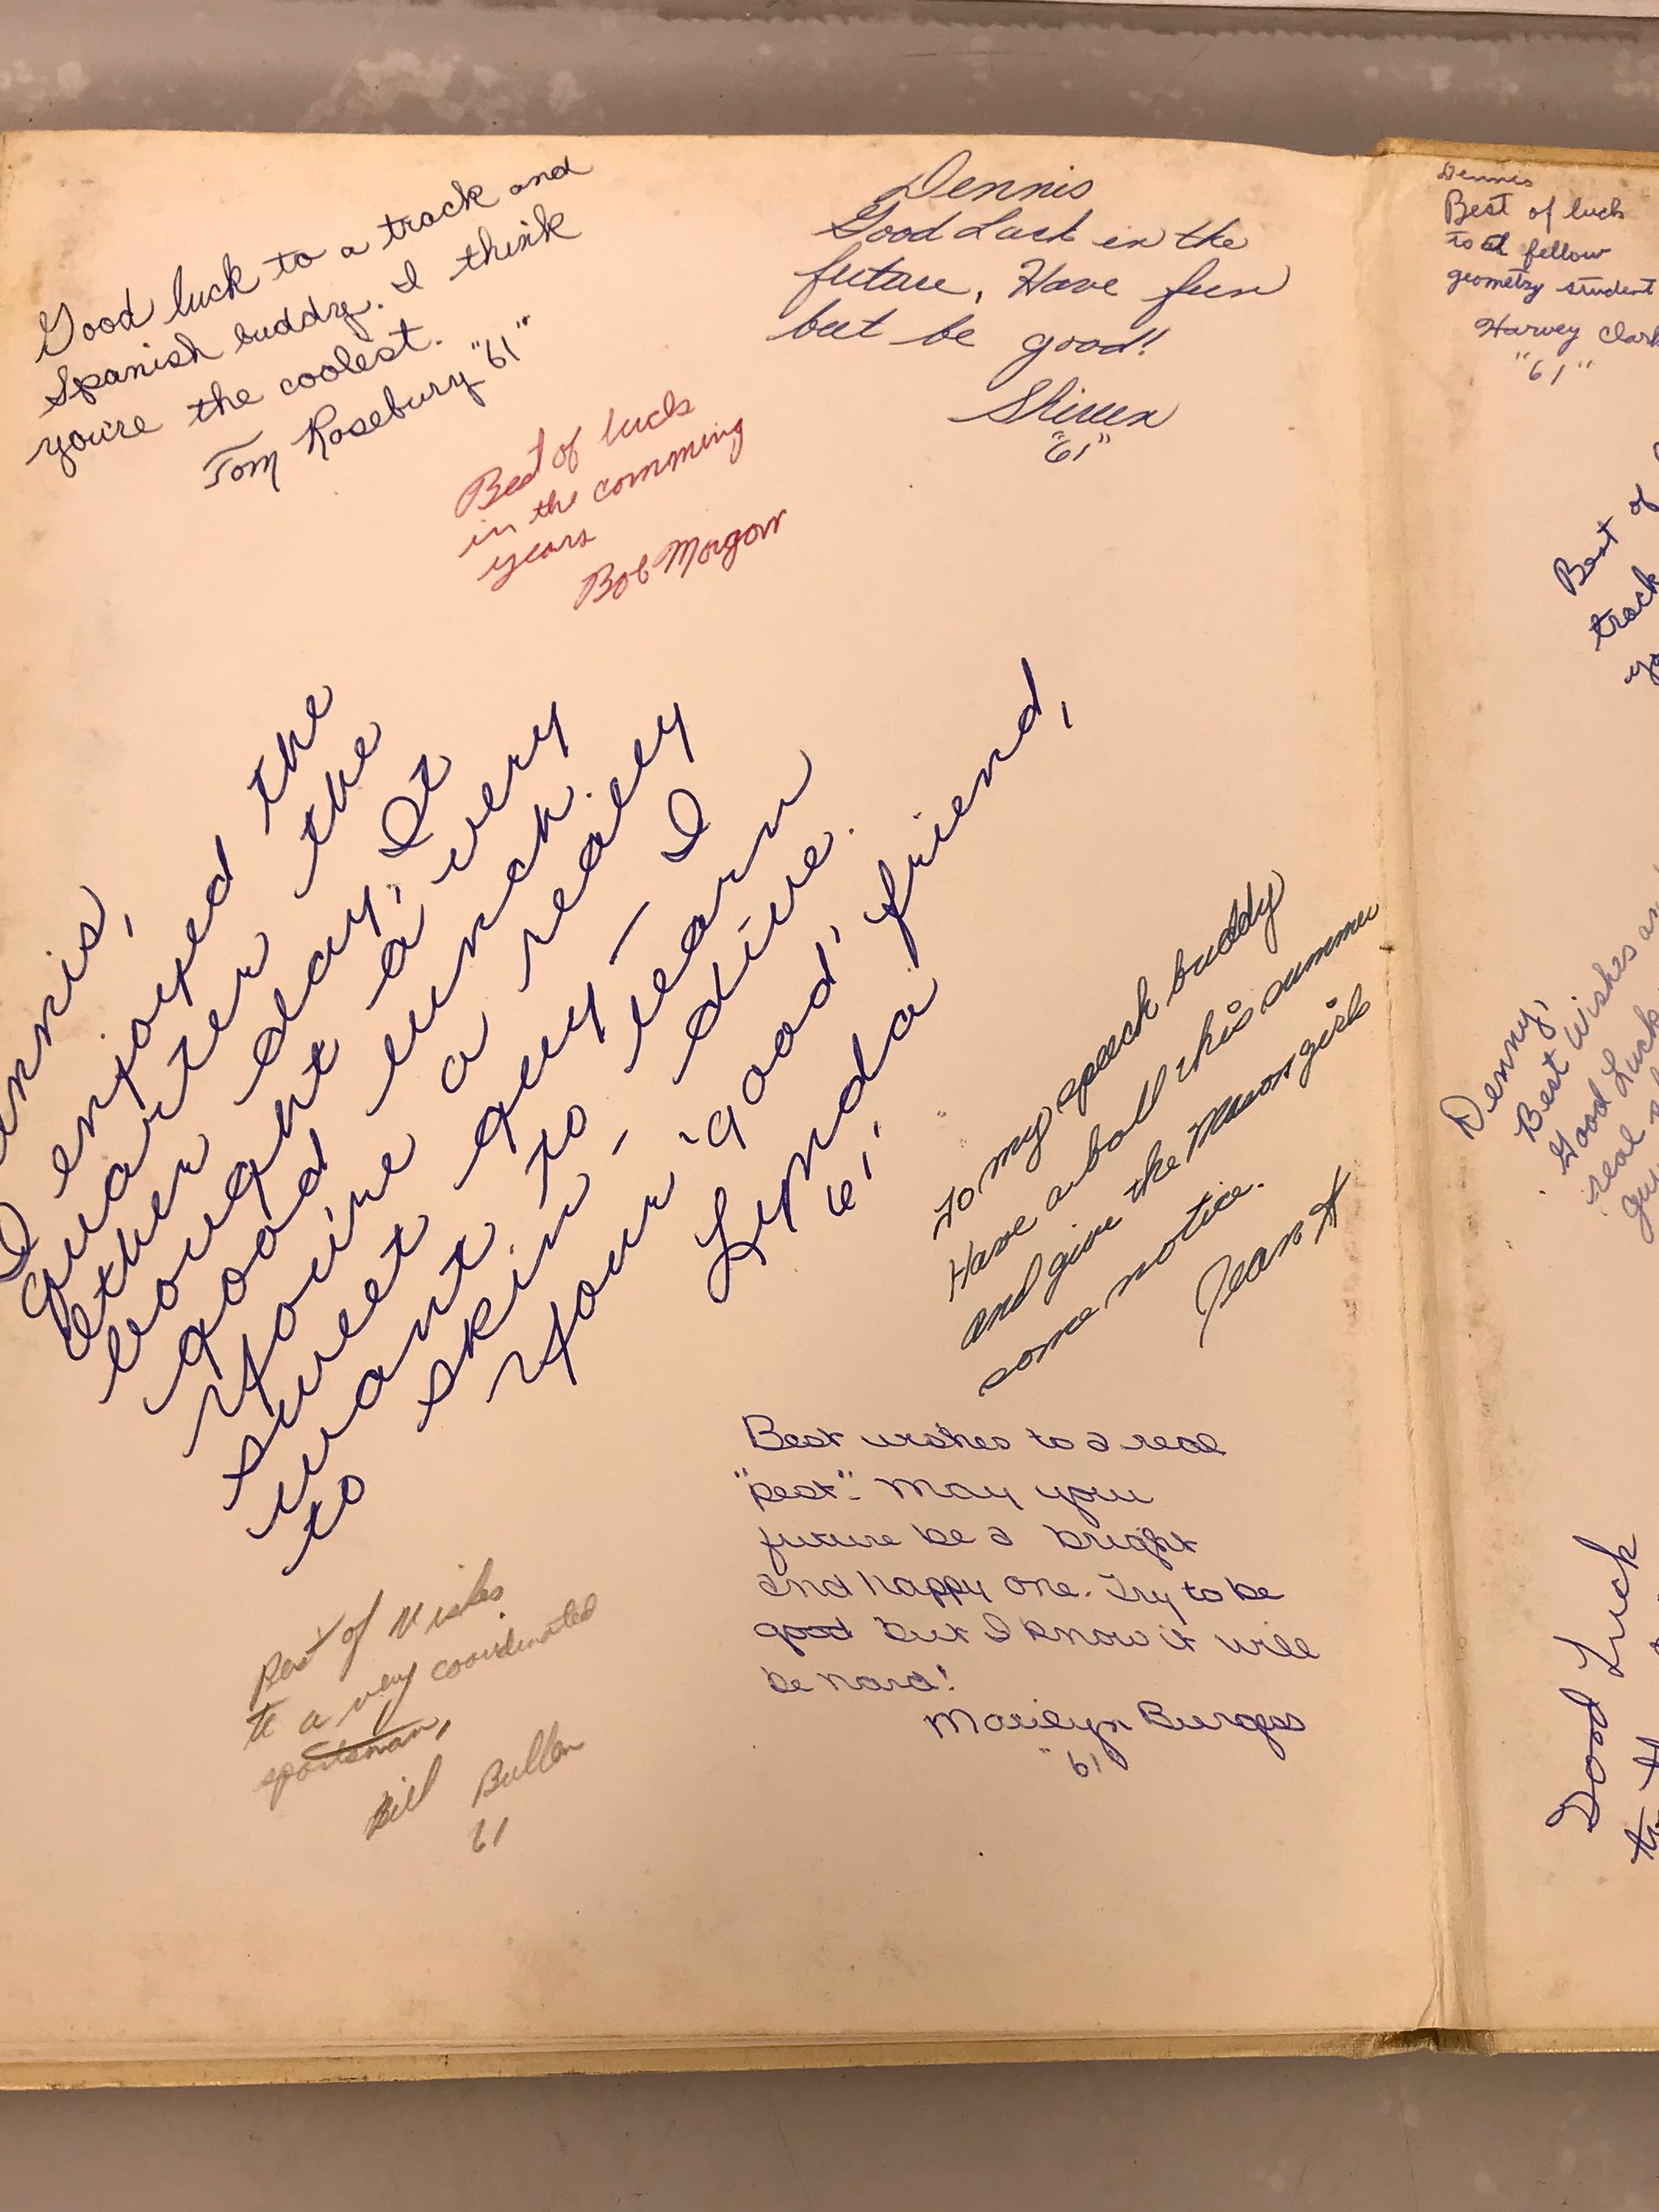 Good luck to a track and
Spanish buddy. I think
you're the coolest.
Tom Rosebury "61"
Dennis
Good Luck in the
future, Have fun
but be good!
"61"
Best of luck
in the comming
years
Bob Morgan
nnis,
I enjoyed the
quarter the
other day, It
bought a very
good lunch.
You're a really
sweet guy — I
want to learn
to skin-dive.
Your 'good' friend,
Lynda
61
To my speech buddy
Have a ball this summer
and give the Mason girls
some notice.
Jean H
Best wishes to a real
"pest". May your
future be a bright
and happy one. Try to be
good but I know it will
be hard!
Marilyn Burgess
"61
Best of Wishes
to a very coordinated
sportsman,
Bill Bullen
61
Dennis
Best of luck
to a fellow
geometry student
Harvey Clark
"61"
Best of
track
Denny,
Best Wishes an
Good Luck
real
Good Luck